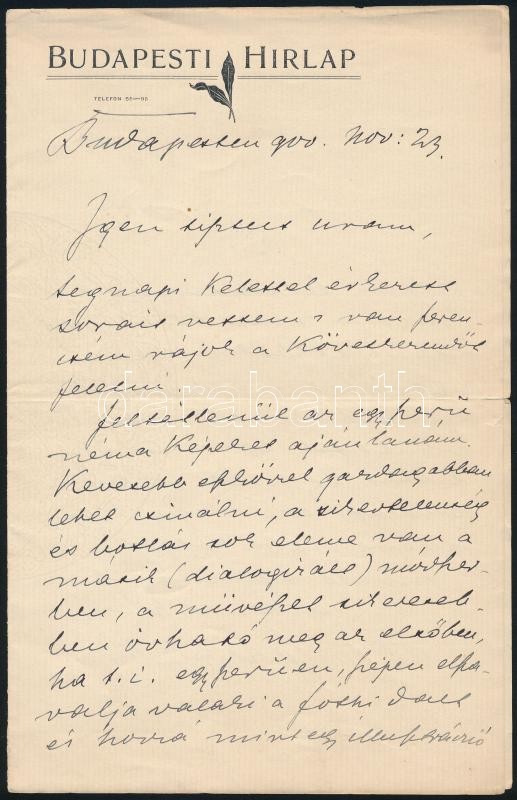 BUDAPESTI HIRLAP
TELEFON 55—95
Budapesten 900. Nov: 23.
Igen tisztelt uram,
tegnapi kelettel érkezett
sorait vettem s van szeren-
csém rájok a következendőkt
felelni.
feltétlenül az egyszerű
néma képeket ajánlanám.
Kevesebb eszközzel gazdagabban
lehet csinálni, a sikertelenség
és botlás sok eleme van a
másik (dialogizált) módszer-
ben, a művészet sikeresebb-
ben óvható meg az elsőben,
ha t. i. egyszerűen, szépen elsza-
valja valaki a fóthi dalt
és hozzá mintegy illusztráció
darabanth.com